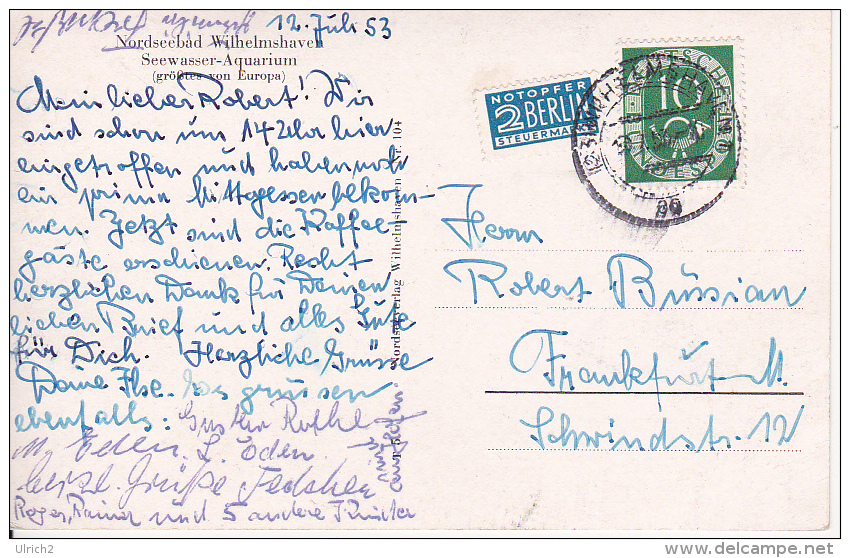 12. Juli 53
Nordseebad Wilhelmshaven
Seewasser-Aquarium
(größtes von Europa)
Mein lieber Robert! Wir
sind schon um 14 Uhr hier
eingetroffen und haben noch
ein prima Mittagessen bekom-
men. Jetzt sind die Kaffee-
gäste erschienen. Recht
herzlichen Dank für Deinen
lieben Brief und alles Gute
für Dich. Herzliche Grüsse
Deine Ilse. Es grüssen
ebenfalls: Gustav
M. Eden. L. Eden.
herzl. Grüße
Roger, Rainer und 5 andere Kinder
Nordseeverlag Wilhelmshaven Nr. 104
NOTOPFER
2 BERLIN
STEUERMARKE
10
WILHELMSHAVEN
Herrn
Robert Büssian
Frankfurt M.
Schwindstr. 12
Ulrich2
delcampe.net